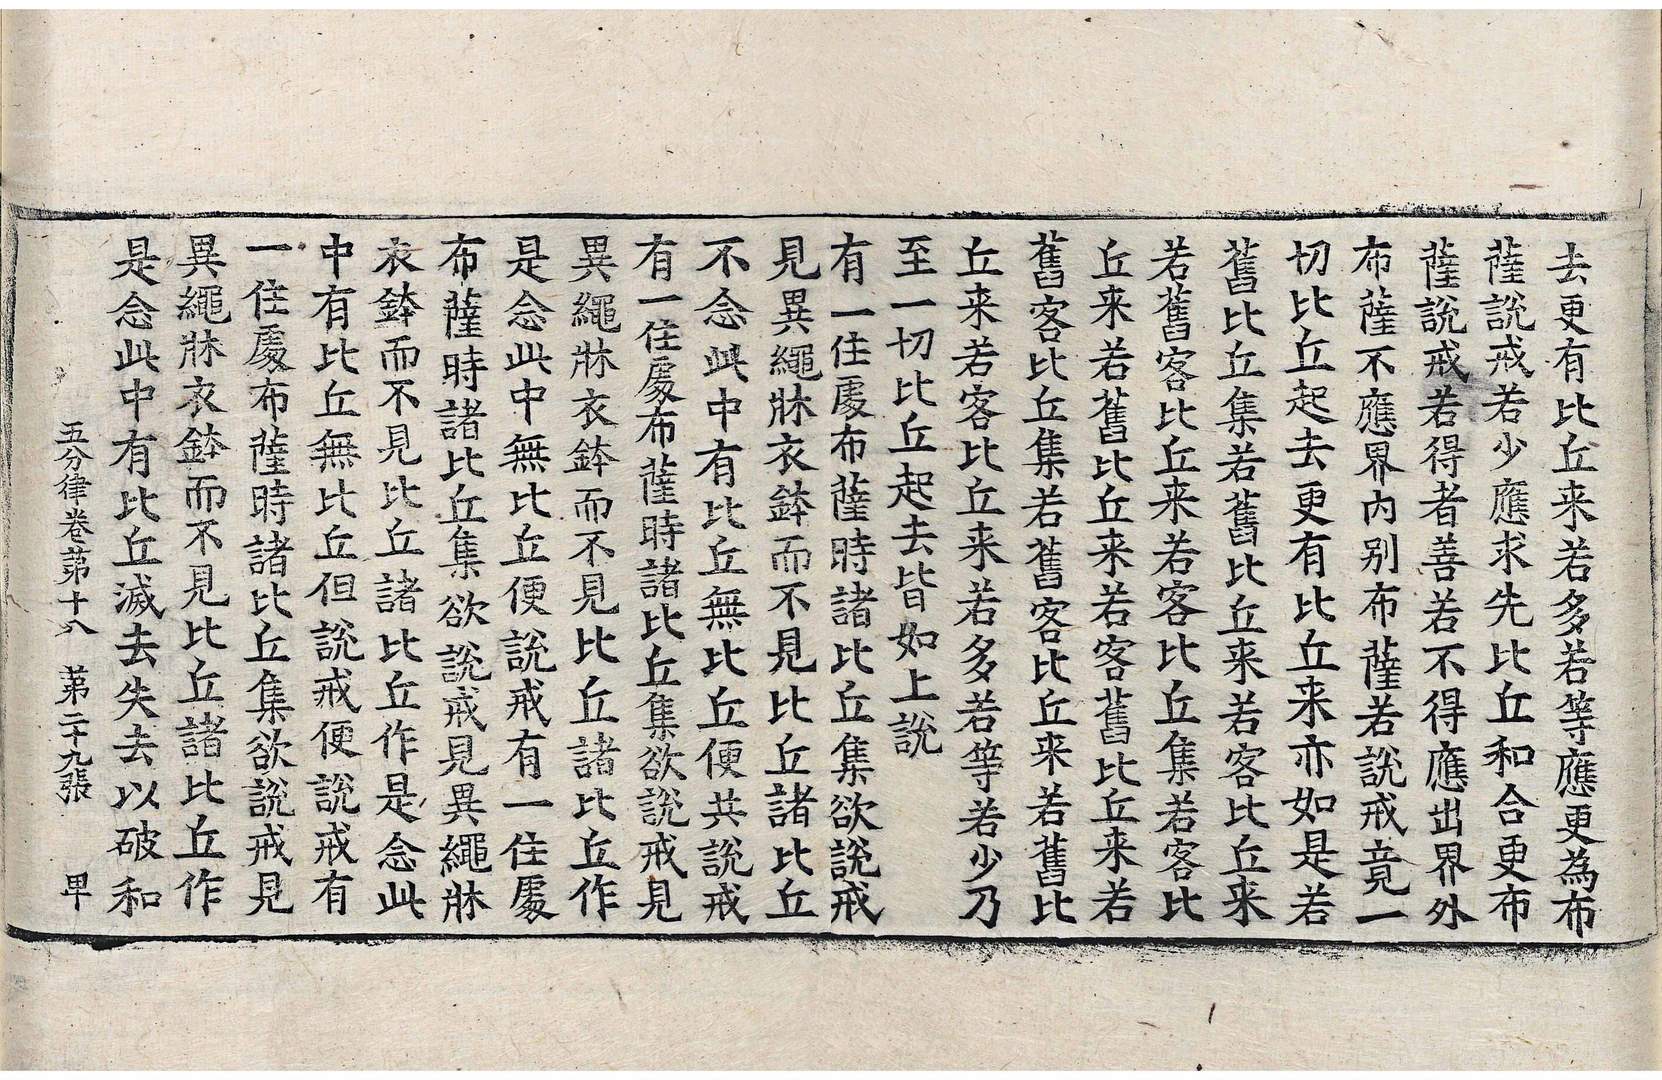 去更有比丘来若多若等應更為布
薩說戒若少應求先比丘和合更布
薩說戒若得者善若不得應出界外
布薩不應界內別布薩若說戒竟一
切比丘起去更有比丘来亦如是若
舊比丘集若舊比丘来若客比丘来
若舊客比丘来若客比丘集若客比
丘来若舊比丘来若客舊比丘来若
舊客比丘集若舊客比丘来若舊比
丘来若客比丘来若多若等若少乃
至一切比丘起去皆如上說
有一住處布薩時諸比丘集欲說戒
見異繩牀衣鉢而不見比丘諸比丘
不念此中有比丘無比丘便共說戒
有一住處布薩時諸比丘集欲說戒見
異繩牀衣鉢而不見比丘諸比丘作
是念此中無比丘便說戒有一住處
布薩時諸比丘集欲說戒見異繩牀
衣鉢而不見比丘諸比丘作是念此
中有比丘無比丘但說戒便說戒有
一住處布薩時諸比丘集欲說戒見
異繩牀衣鉢而不見比丘諸比丘作
是念此中有比丘滅去失去以破和
五分律卷第十八 第二十九張 甲